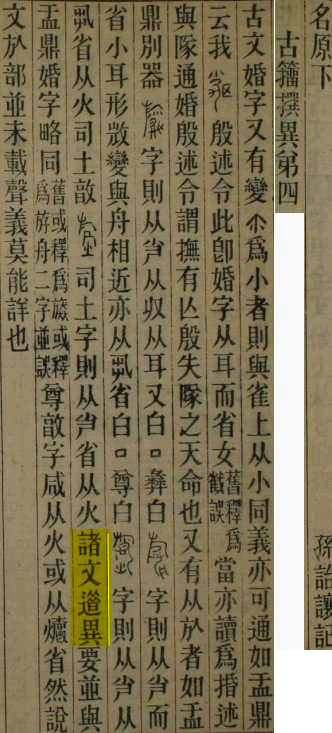 名原下 孫詒讓記
古籀撰異第四
古文婚字又有變尒爲小者則與雀上从小同義亦可通如盂鼎
云我殷述令此卽婚字从耳而省女舊釋爲誤當亦讀爲捪述
與隊通婚殷述令謂撫有亾殷失隊之天命也又有从於者如盂
鼎別器字則从屵从収从耳又白囗彝白字則从屵而
省小耳形㪚變與舟相近亦从丮省白囗尊白字則从屵从
丮省从火司土㪟司土字則从屵省从火諸文異要並與
盂鼎婚字略同舊或釋爲或釋爲斿舟二字並誤尊㪟字咸从火或从省然說
文於部並未載聲義莫能詳也